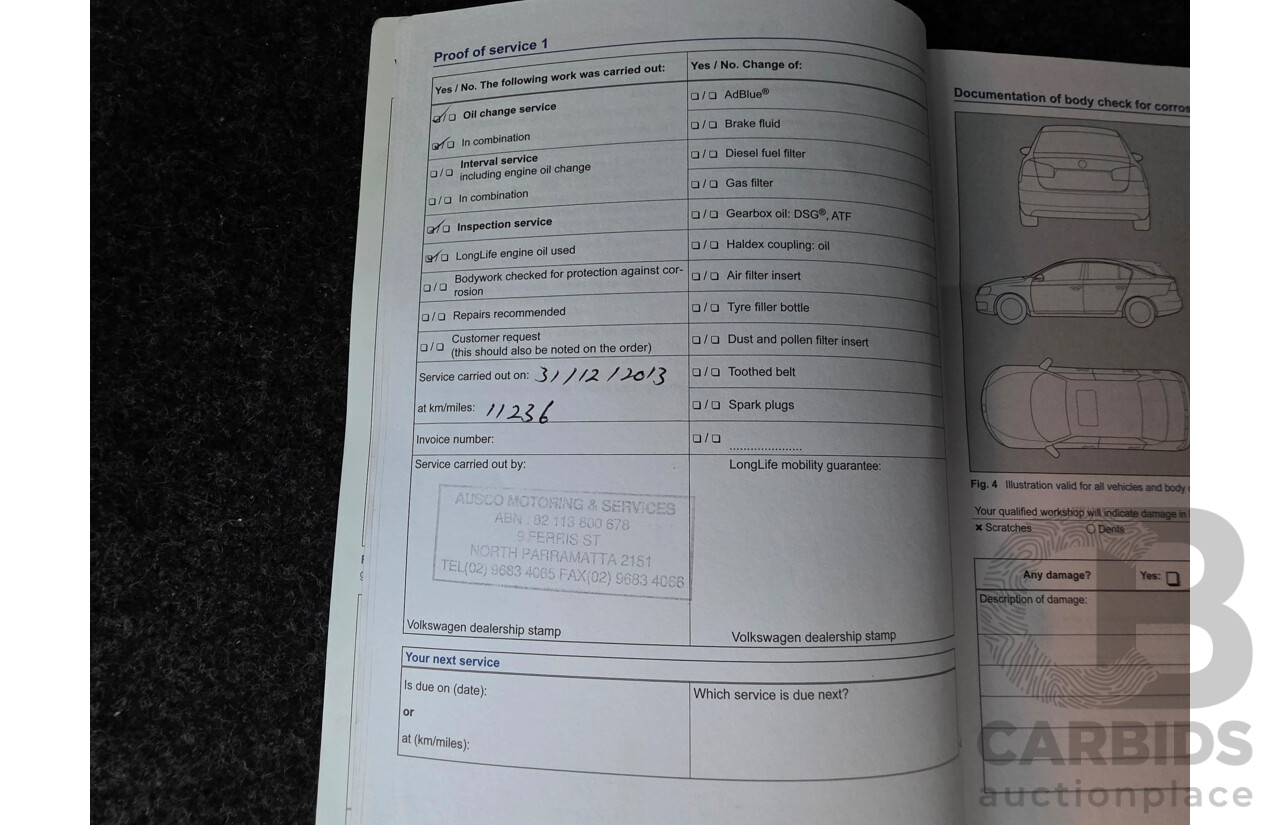 Proof of service 1
Yes / No. The following work was carried out:
Oil change service
In combination
Interval service
including engine oil change
In combination
Inspection service
LongLife engine oil used
Bodywork checked for protection against cor-
rosion
Repairs recommended
Customer request
(this should also be noted on the order)
Service carried out on: 31/12/2013
at km/miles: 11236
Invoice number:
Service carried out by:
AUSCO MOTORING & SERVICES
ABN : 82 113 800 678
9 FERRIS ST
NORTH PARRAMATTA 2151
TEL(02) 9683 4065 FAX(02) 9683 4066
Volkswagen dealership stamp
Yes / No. Change of:
AdBlue®
Brake fluid
Diesel fuel filter
Gas filter
Gearbox oil: DSG®, ATF
Haldex coupling: oil
Air filter insert
Tyre filler bottle
Dust and pollen filter insert
Toothed belt
Spark plugs
LongLife mobility guarantee:
Volkswagen dealership stamp
Your next service
Is due on (date):
or
at (km/miles):
Which service is due next?
Documentation of body check for corros
Fig. 4 Illustration valid for all vehicles and body
Your qualified workshop will indicate damage in
Scratches
Dents
Any damage?
Yes:
Description of damage:
CB
CARBIDS
auctionplace